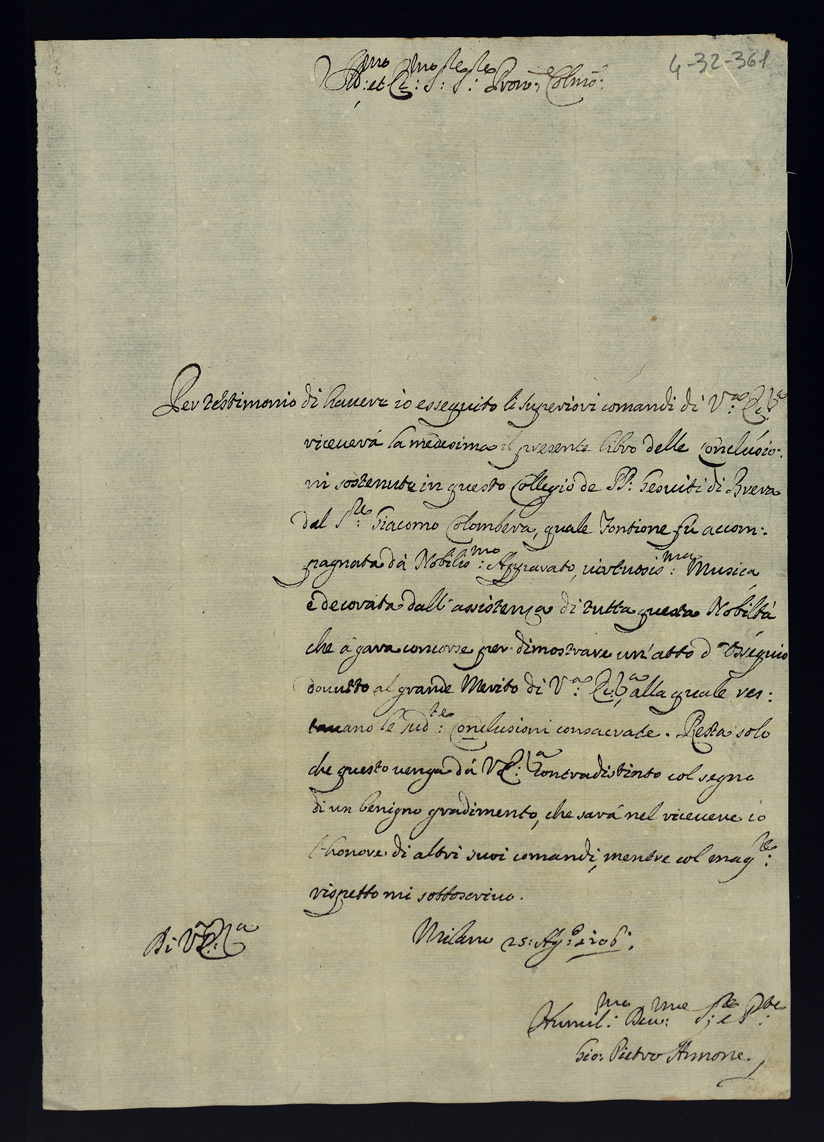 4-32-361
Ill.mo et Ecc.mo S.re S.re Pron. Colmo:
Per testimonio di havere io esseguito li superiori comandi di V.ra Ecc.za
riceverà la medesima il presente libro delle Conclusio:
ni sostenute in questo Collegio de PP: Gesuiti di Brera
dal S.re Giacomo Colombera, quale Fontione fù accom:
pagnata dà Nobilis.mo Apparato, virtuosis.ma Musica
e decorata dall'assistenza di tutta questa Nobiltà
che à gara concorse per dimostrare un'atto d'Ossequio
dovuto al grande Merito di V.a Ecc.za alla quale res:
tauano le sud.te Conclusioni consacrate. Resta solo
che questo venga dà V.E.za contradistinto col segno
di un benigno gradimento, che sarà nel ricevere io
l'honore di altri suoi comandi, mentre col mag.re
rispetto mi sottoscrivo.
Di V.E.za
Milano 25: Ag.o 1706:
Humil.mo Deu.mo S.re e S.re
Gio: Pietro Annone.